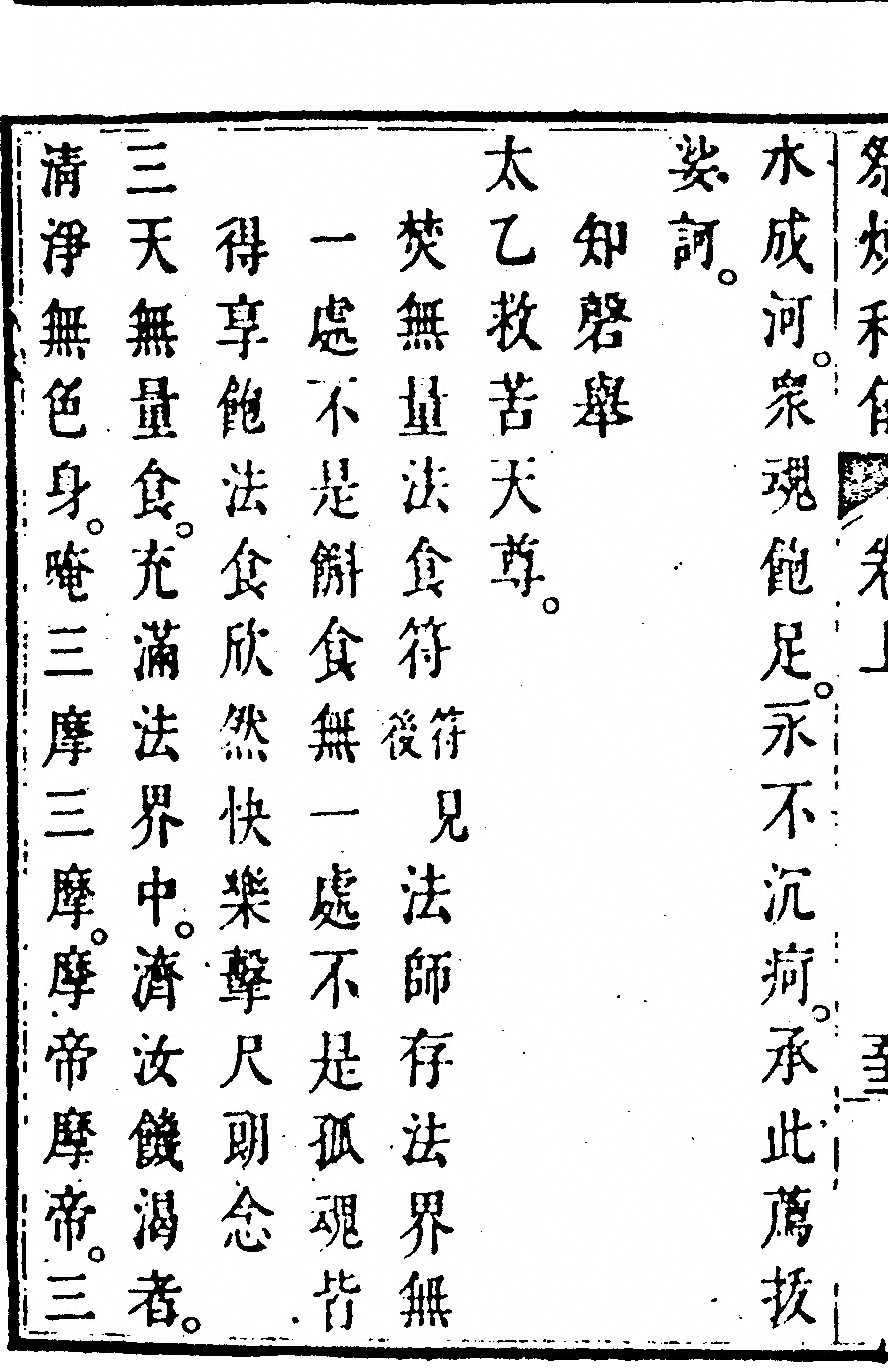 卷上
水成河。衆魂飽足。永不沉疴。承此薦拔
娑訶。
知磬舉
太乙救苦天尊。
焚無量法食符符見後法師存法界無
一處不是斛食無一處不是孤魂皆
得享飽法食欣然快樂擊尺朗念
三天無量食。充滿法界中。濟汝饑渴者。
清淨無色身。唵三摩三摩。摩帝摩帝。三